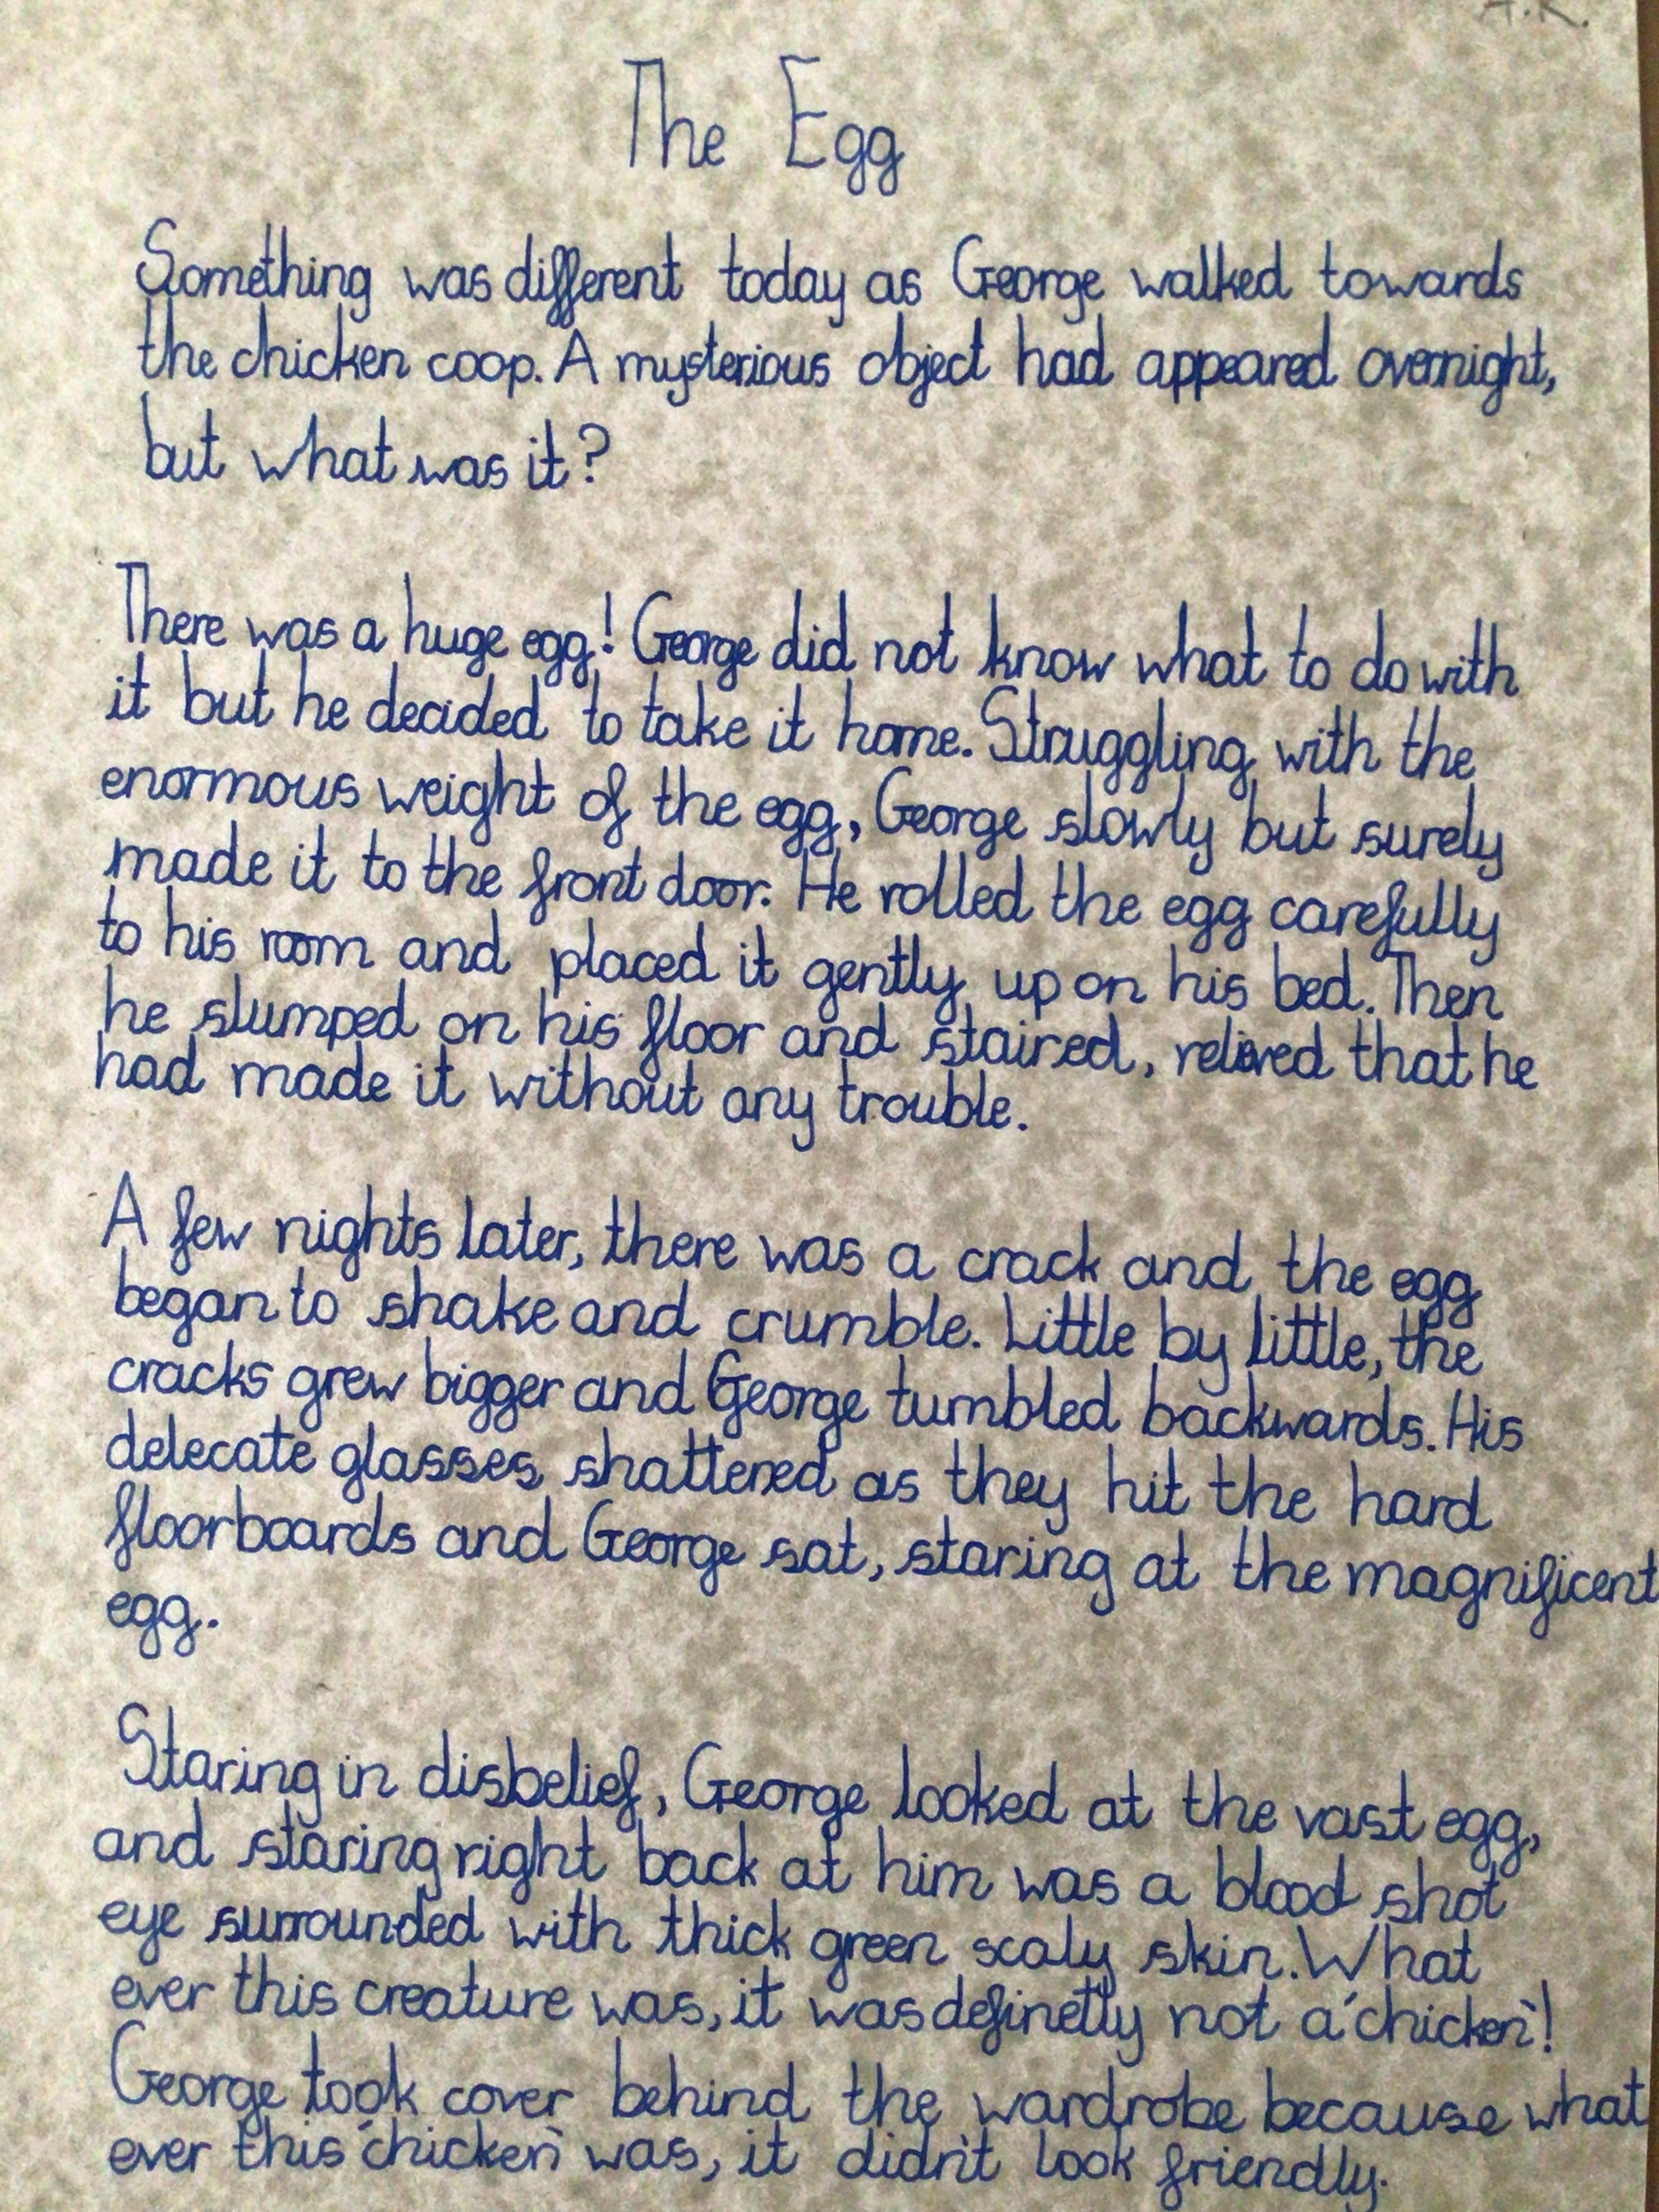 A.K.
The Egg
Something was different today as George walked towards
the chicken coop. A mysterious object had appeared overnight,
but what was it?
There was a huge egg! George did not know what to do with
it but he decided to take it home. Struggling with the
enormous weight of the egg, George slowly but surely
made it to the front door. He rolled the egg carefully
to his room and placed it gently up on his bed. Then
he slumped on his floor and staired, relieved that he
had made it without any trouble.
A few nights later, there was a crack and the egg
began to shake and crumble. Little by little, the
cracks grew bigger and George tumbled backwards. His
delecate glasses shattered as they hit the hard
floorboards and George sat, staring at the magnificent
egg.
Staring in disbelief, George looked at the vast egg,
and staring right back at him was a blood shot
eye surrounded with thick green scaly skin. What
ever this creature was, it was definetly not a 'chicken'!
George took cover behind the wardrobe because what
ever this 'chicken' was, it didn't look friendly.